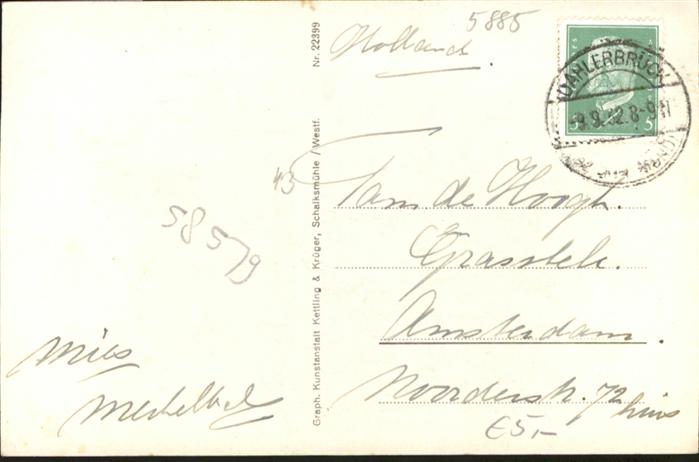 5885
Holland
DAHLERBRÜCK
9.9.32.8-9V
5
Nr. 22399
Graph. Kunstanstalt Kettling & Krüger, Schalksmühle / Westf.
43
58579
Fam de Hoogh.
Grasstek.
Amsterdam.
Noorderstr. 72 huis
€5,-
Mies